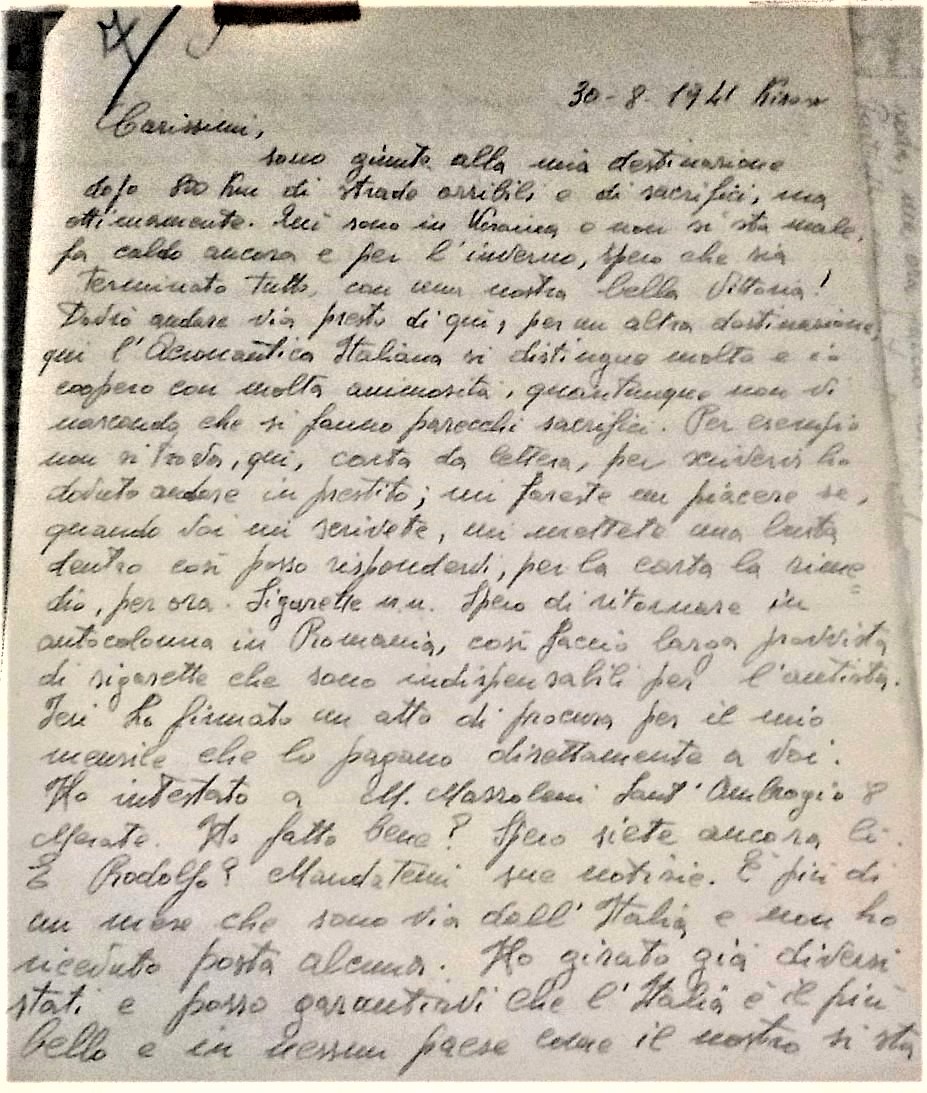 30-8-1941
Carissimi,
sono giunto alla mia destinazione
dopo 800 Km di strade orribili e di sacrifici, ma
ottimamente. Qui sono in Ucraina e non si sta male,
fa caldo ancora e per l'inverno, spero che sia
terminato tutto, con una nostra bella Vittoria!
Dovrò andare via presto di qui, per un altra destinazione,
qui l'Aeronautica Italiana si distingue molto e io
coopero con molta animosità, quantunque non vi
nascondo che si fanno parecchi sacrifici. Per esempio
non si trova, qui, carta da lettera, per scrivervi ho
dovuto andare in prestito; mi fareste un piacere se,
quando voi mi scrivete, mi mettete una busta
dentro così posso rispondervi, per la carta la rime=
dio, per ora. Sigarette n.n. Spero di ritornare in
autocolonna in Romania, così faccio larga provvista
di sigarette che sono indispensabili per l'autista.
Ieri ho firmato un atto di procura per il mio
mensile che lo pagano direttamente a voi.
Ho intestato a M. Mazzoleni Sant'Ambrogio 8
Merate. Ho fatto bene? Spero siete ancora lì.
E Rodolfo? Mandatemi sue notizie. È più di
un mese che sono via dall'Italia e non ho
ricevuto posta alcuna. Ho girato già diversi
stati e posso garantirvi che l'Italia è il più
bello e in nessun paese come il nostro si sta